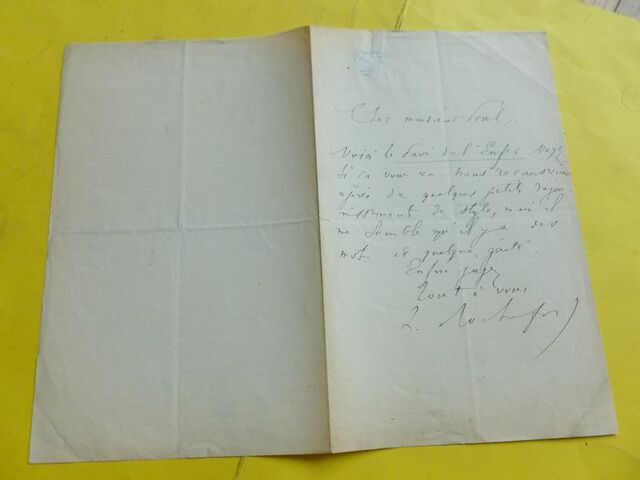 Cher monsieur Porel,
Voici le Pavé de l'Enfer. Voyez
si ça vous va. Nous recauserions
après de quelques petits
de style, mais il
me semble qu'il y a des
mots et quelque gaité.
Enfin jugez
Tout à vous
H. Rochefort